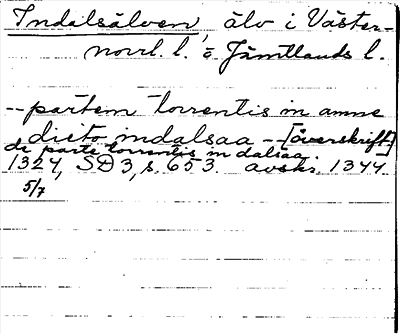 Indalsälven, älv i Väster-
norrl. l. o. Jämtlands l.
-- partem torrentis in amne
dicto indalsaa -- [överskrift:]
de parte torrentis in dalsaa.
1324, SD 3, s. 653. avskr. 1344.
5/7